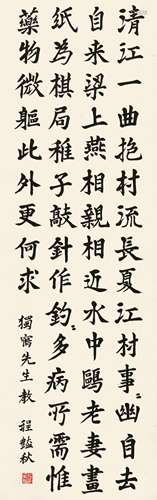 清江一曲抱村流長夏江村事〻幽自去
自来梁上燕相親相近水中鷗老妻畫
紙為棋局稚子敲針作釣〻多病所需惟
藥物微軀此外更何求
獨先生教 程豔秋